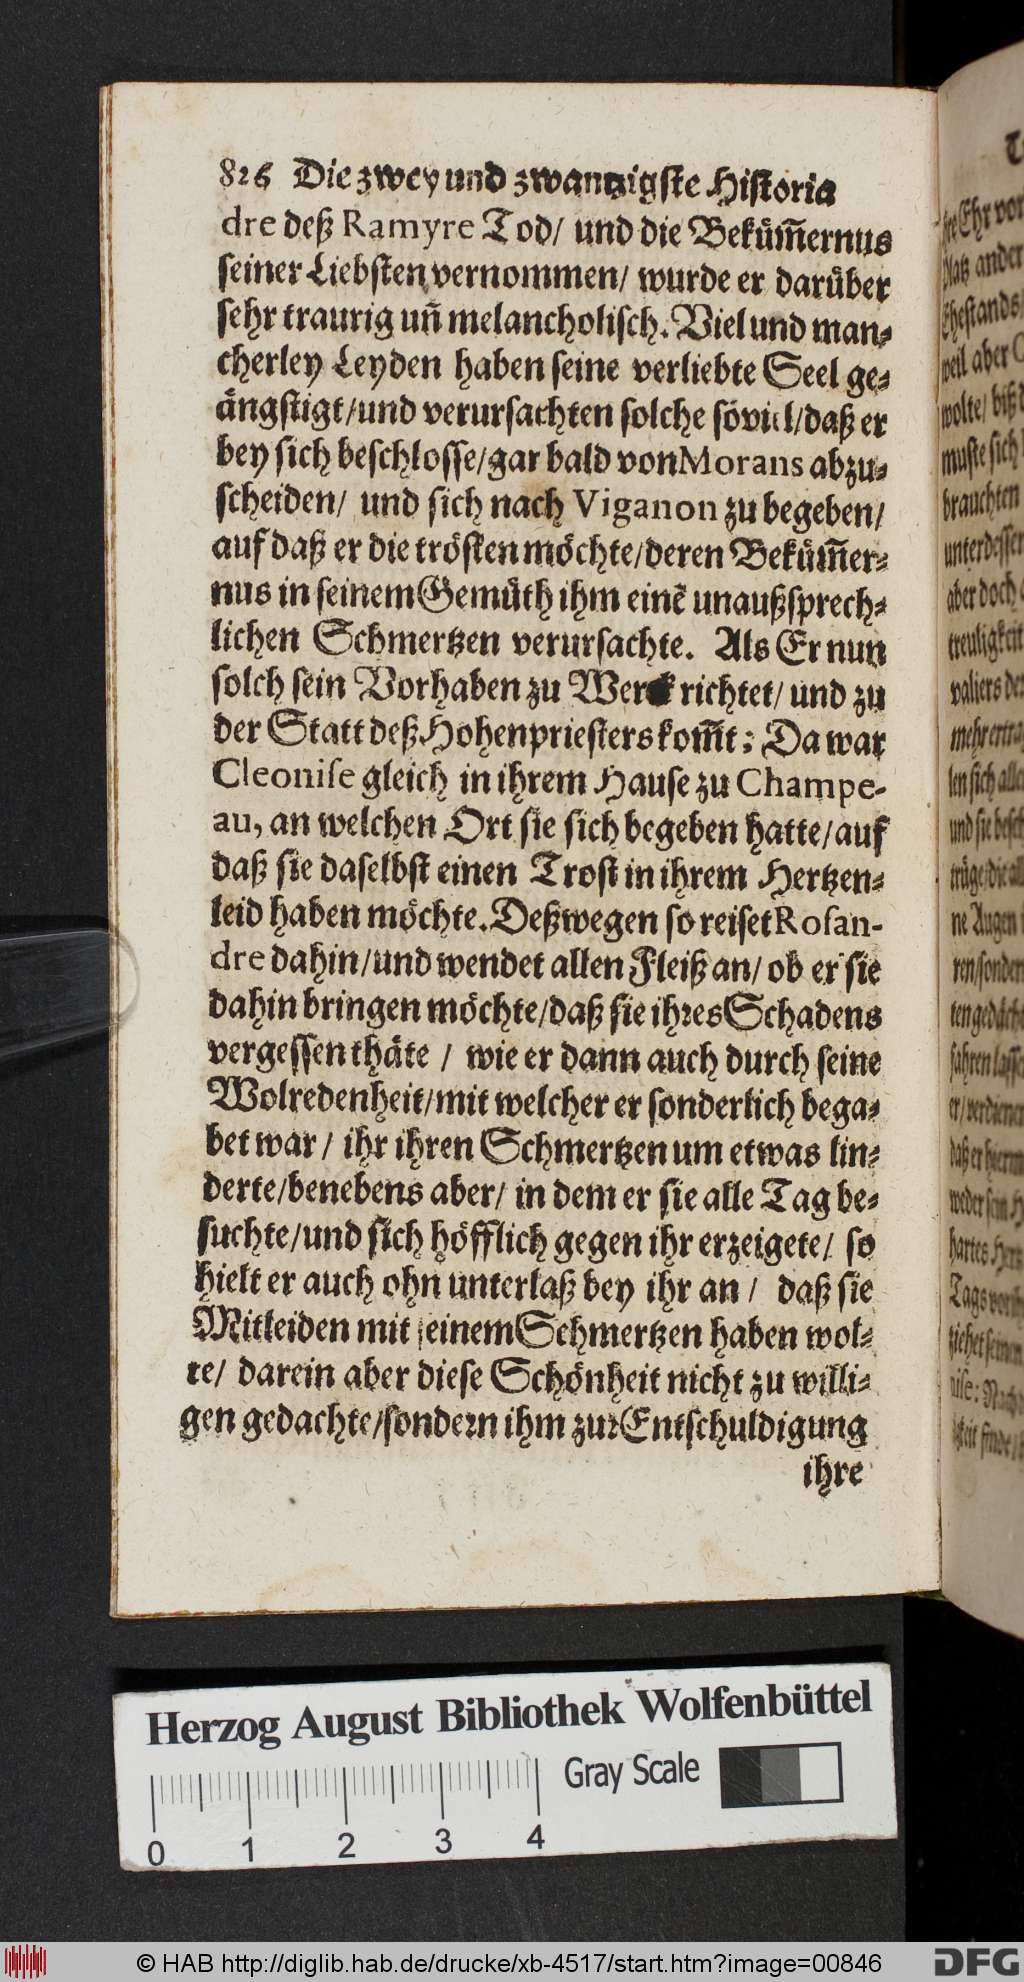 826 Die zwey und zwantzigste Historia
dre deß Ramyre Tod/ und die Bekům̃ernus
seiner Liebsten vernommen/ wurde er darůber
sehr traurig uñ melancholisch. Viel und man-
cherley Leyden haben seine verliebte Seel ge-
ångstigt/und verursachten solche soviel/daß er
bey sich beschlosse/gar bald von Morans abzu-
scheiden/ und sich nach Viganon zu begeben/
auf daß er die trősten mőchte/deren Bekům̃er-
nus in seinem Gemůth ihm einẽ unaußsprech-
lichen Schmertzen verursachte. Als Er nun
solch sein Vorhaben zu Werck richtet/ und zu
der Statt deß Hohenpriesters kom̃t: Da war
Cleonise gleich in ihrem Hause zu Champe-
au, an welchen Ort sie sich begeben hatte/auf
daß sie daselbst einen Trost in ihrem Hertzen-
leid haben mőchte. Deßwegen so reiset Rosan-
dre dahin/und wendet allen Fleiß an/ ob er sie
dahin bringen mőchte/daß sie ihres Schadens
vergessen thåte / wie er dann auch durch seine
Wolredenheit/mit welcher er sonderlich bega-
bet war/ ihr ihren Schmertzen um etwas lin-
derte/benebens aber/ in dem er sie alle Tag be-
suchte/und sich hőfflich gegen ihr erzeigete/ so
hielt er auch ohn unterlaß bey ihr an / daß sie
Mitleiden mit seinem Schmertzen haben wol-
te/ darein aber diese Schőnheit nicht zu willi-
gen gedachte/sondern ihm zur Entschuldigung
ihre
Herzog August Bibliothek Wolfenbüttel
Gray Scale
0 1 2 3 4
© HAB http://diglib.hab.de/drucke/xb-4517/start.htm?image=00846
DFG